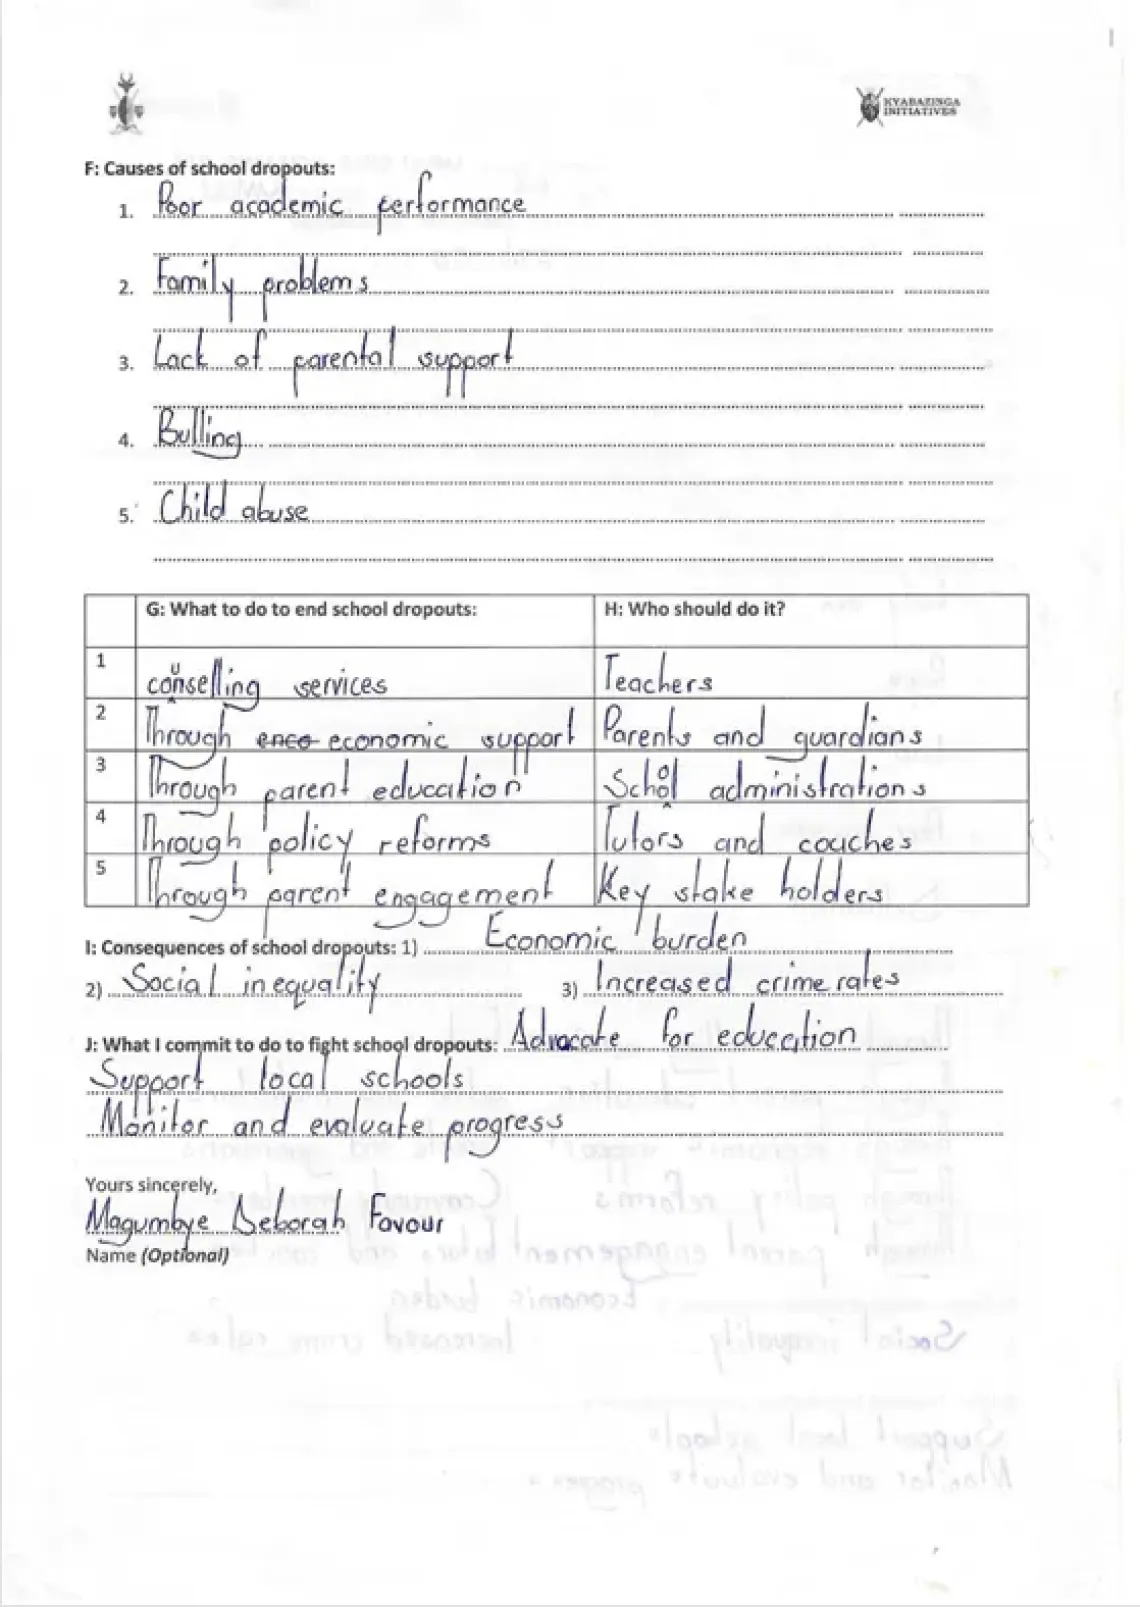 KYABAZINGA
INITIATIVES
F: Causes of school dropouts:
1. Poor academic performance
2. Family problems
3. Lack of parental support
4. Bulling
5. Child abuse
G: What to do to end school dropouts: H: Who should do it?
1 counselling services Teachers
2 Through enco economic support Parents and guardians
3 Through parent education School administrations
4 Through policy reforms Tutors and couches
5 Through parent engagement Key stake holders
I: Consequences of school dropouts: 1) Economic burden
2) Social inequality 3) Increased crime rates
J: What I commit to do to fight school dropouts: Advocate for education
Support local schools
Monitor and evaluate progress
Yours sincerely,
Magumbye Deborah Favour
Name (Optional)